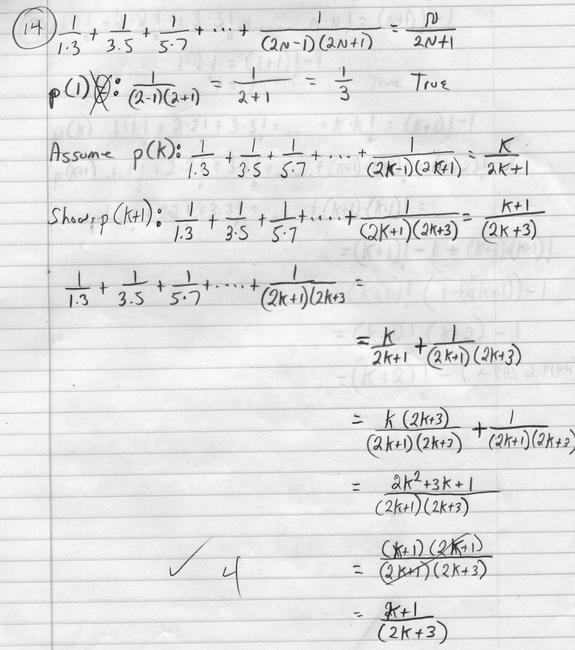 14 1/1·3 + 1/3·5 + 1/5·7 + ··· + 1/(2N-1)(2N+1) = N/2N+1
p(1): 1/(2-1)(2+1) = 1/2+1 = 1/3 True
Assume p(k): 1/1·3 + 1/3·5 + 1/5·7 + ··· + 1/(2k-1)(2k+1) = k/2k+1
Show p(k+1): 1/1·3 + 1/3·5 + 1/5·7 + ···· + 1/(2k+1)(2k+3) = k+1/(2k+3)
1/1·3 + 1/3·5 + 1/5·7 + ····· + 1/(2k+1)(2k+3 =
= k/2k+1 + 1/(2k+1)(2k+3)
= k(2k+3)/(2k+1)(2k+3) + 1/(2k+1)(2k+3)
= 2k²+3k+1/(2k+1)(2k+3)
= (k+1)(2k+1)/(2k+1)(2k+3)
✓ 4
= k+1/(2k+3)